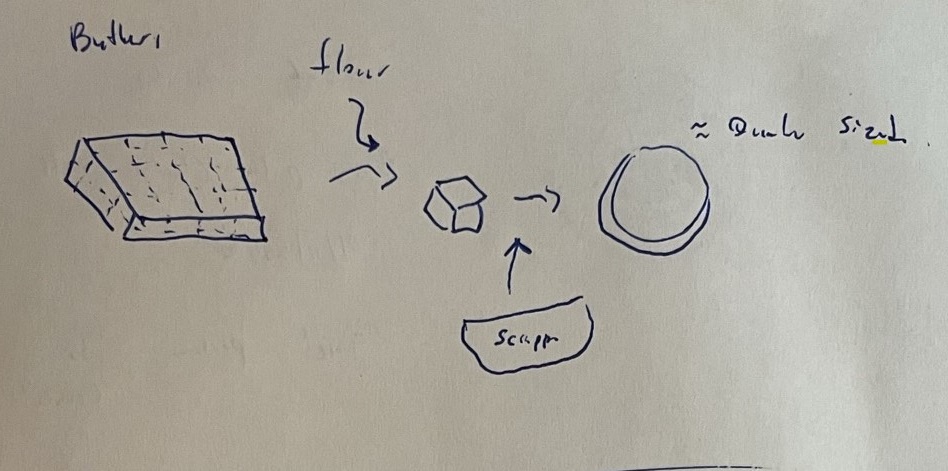 Butter,
flour
≈ Quarter sized.
Scrapper